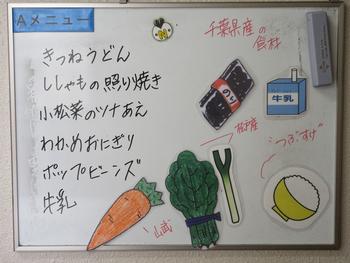 Aメニュー
きつねうどん
ししゃもの照り焼き
小松菜のツナあえ
わかめおにぎり
ポップビーンズ
牛乳
千葉県産の
食材
のり
牛乳
松戸産
つぶすけ
山武